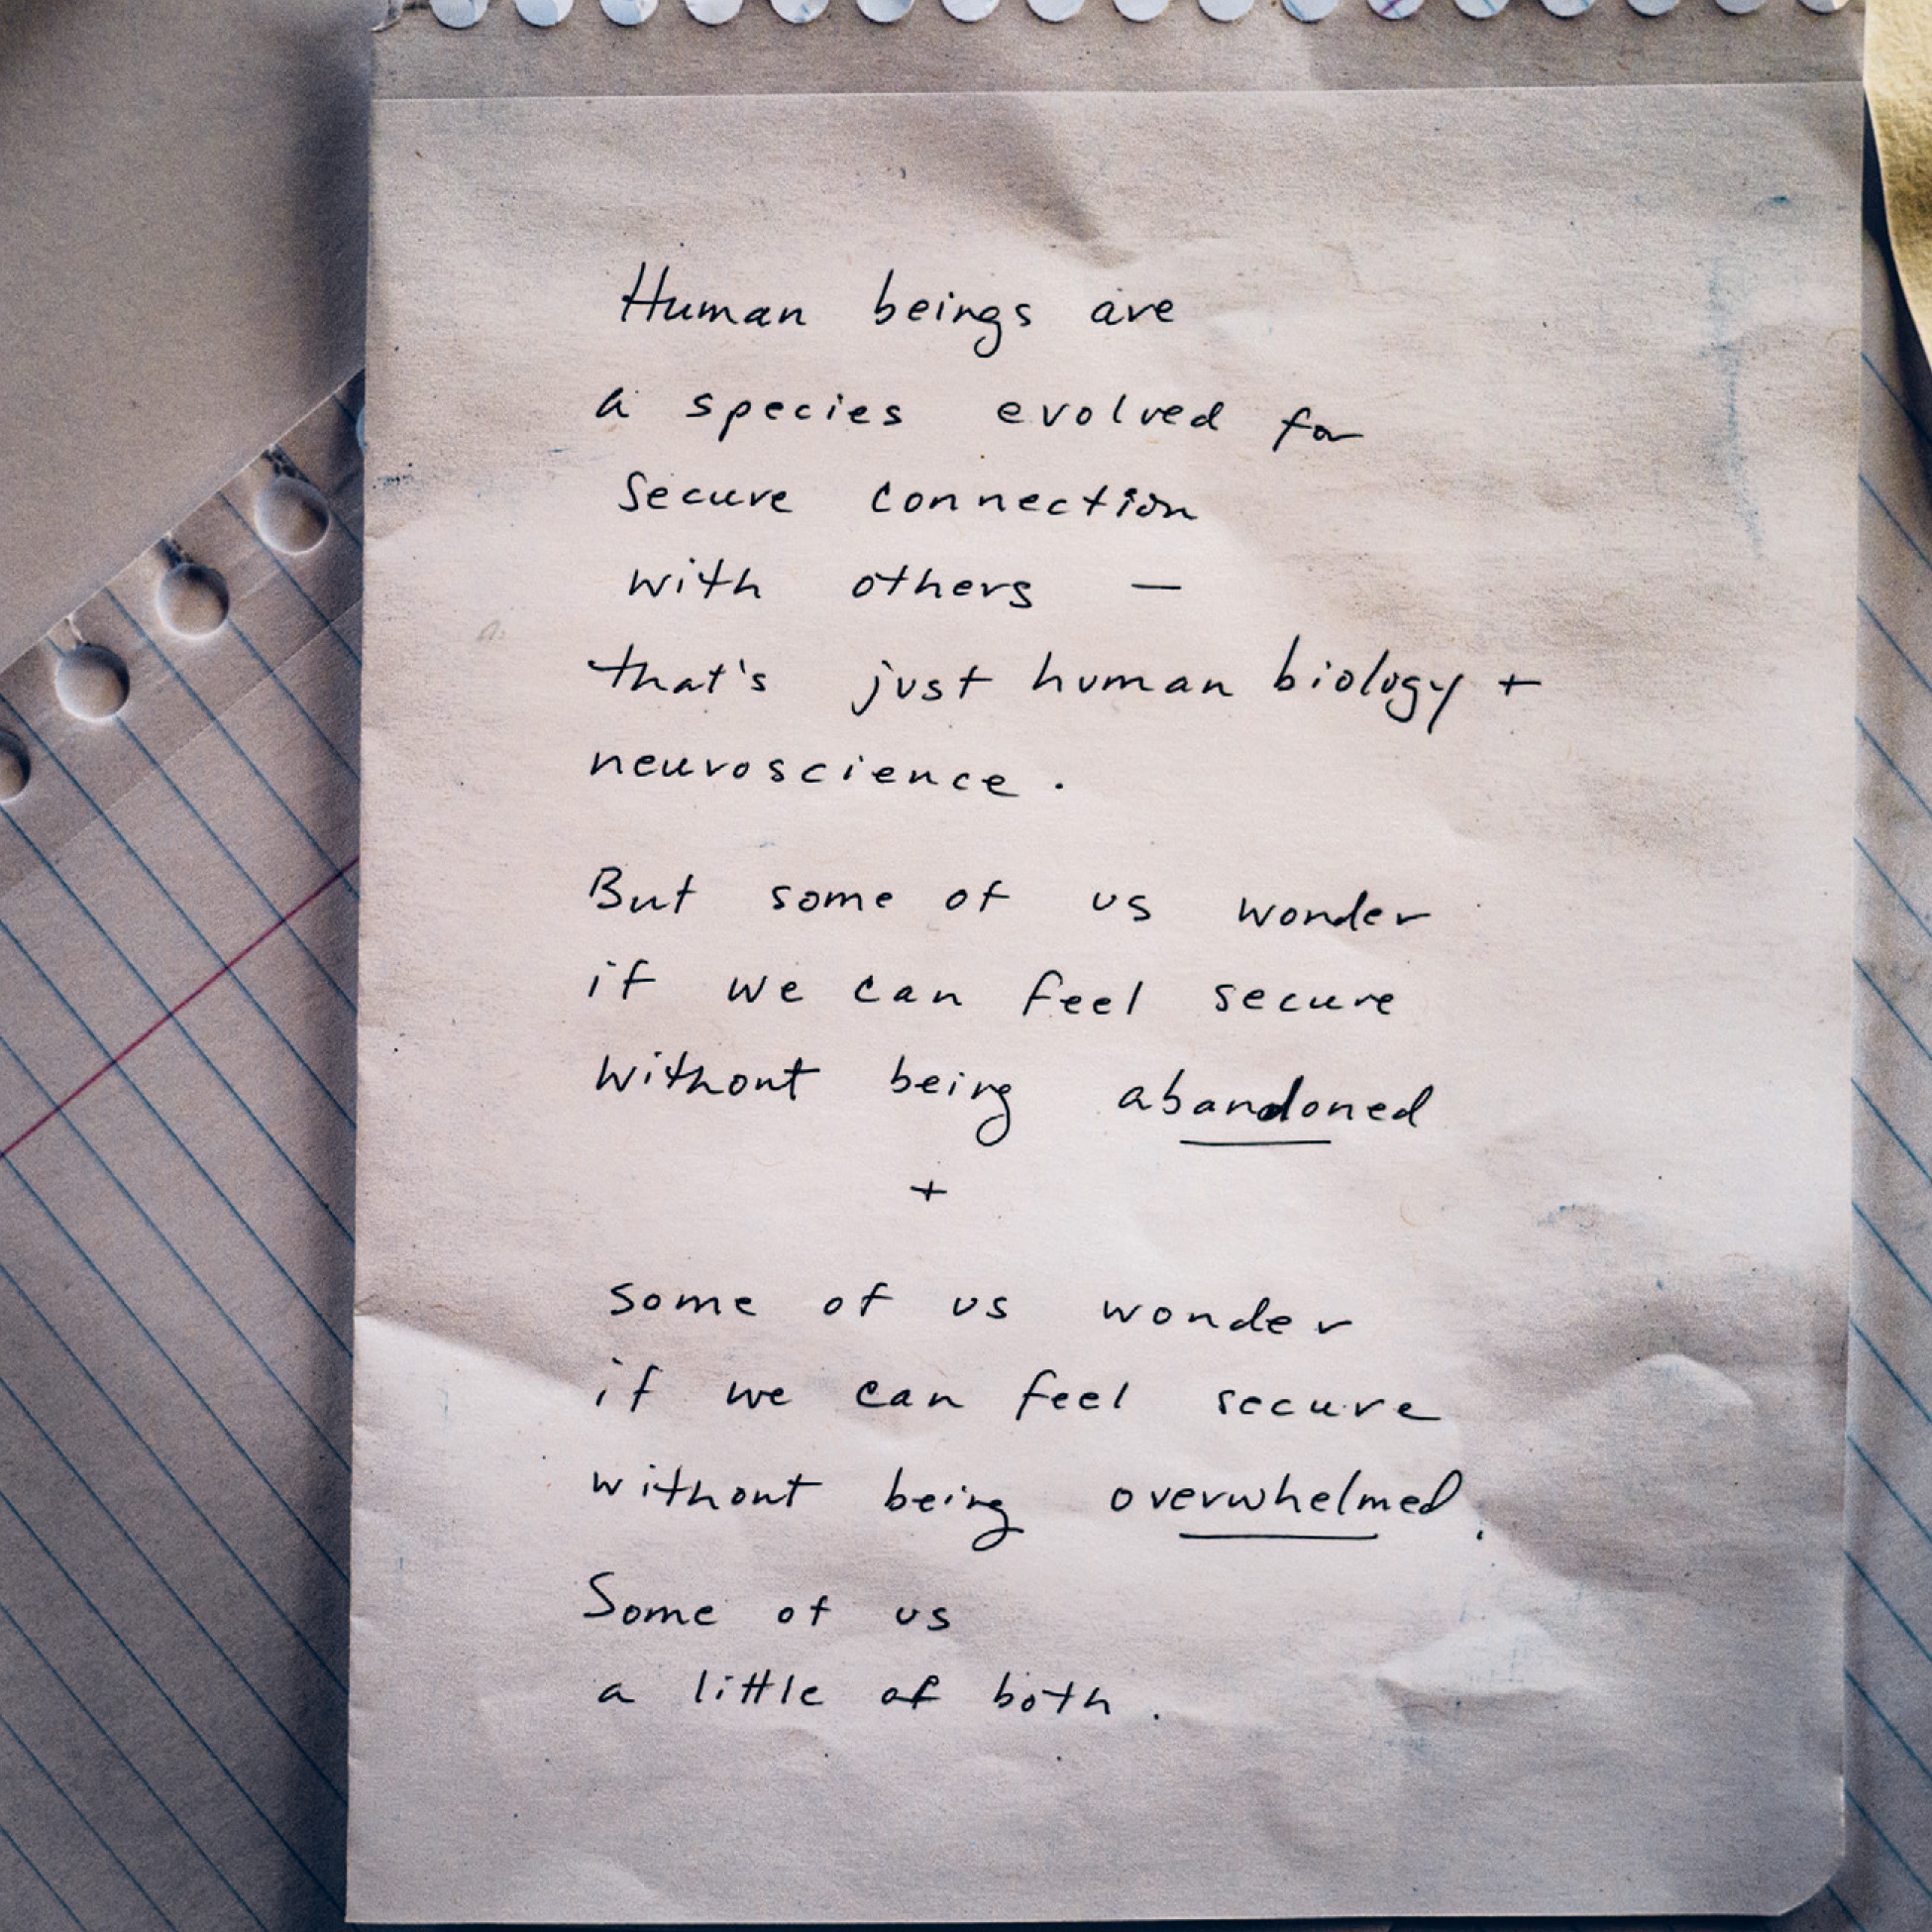 Human beings are
a species evolved for
secure connection
with others —
that's just human biology +
neuroscience.
But some of us wonder
if we can feel secure
without being abandoned
+
some of us wonder
if we can feel secure
without being overwhelmed.
Some of us
a little of both.